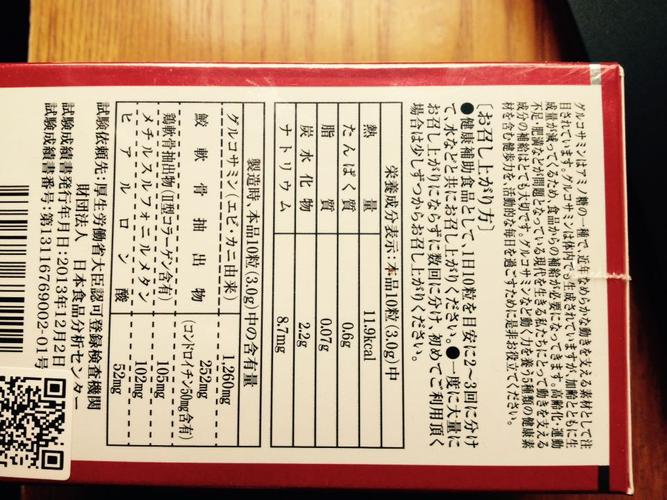 グルコサミンはアミノ糖の一種で、近年なめらかな動きを支える素材として注
目されています。グルコサミンは体内でも生成されていますが、加齢とともに生
成量が減っているため、食品からの補給が必要になってきます。高齢化・運動
不足・肥満などが問題となっている現代を生きる私たちにとって動きを支える
成分の補給はとても大切です。グルコサミンなど動く力を養う5種類の健康素
材を含む健歩力を、活動的な毎日を過ごすために是非お役立てください。
〔お召し上がり方〕
●健康補助食品として、1日10粒を目安に2~3回に分け
て、水などと共にお召し上がりください。●一度に大量に
お召し上がりにならずに数回に分け 初めてご利用頂く
場合は少しずつからお召し上がりください。
栄養成分表示:本品10粒(3.0g)中
熱量 11.9kcal
たんぱく質 0.6g
脂質 0.07g
炭水化物 2.2g
ナトリウム 8.7mg
製造時、本品10粒(3.0g)中の含有量
グルコサミン(エビ・カニ由来) 1,260mg
鮫軟骨抽出物 252mg
(コンドロイチン50mg含有)
鶏軟骨抽出物(Ⅱ型コラーゲン含有) 105mg
メチルスルフォニルメタン 102mg
ヒアルロン酸 52mg
試験依頼先:厚生労働省大臣認可登録検査機関
財団法人 日本食品分析センター
試験成績書発行年月日:2013年12月2日
試験成績書番号:第13116769002-01号